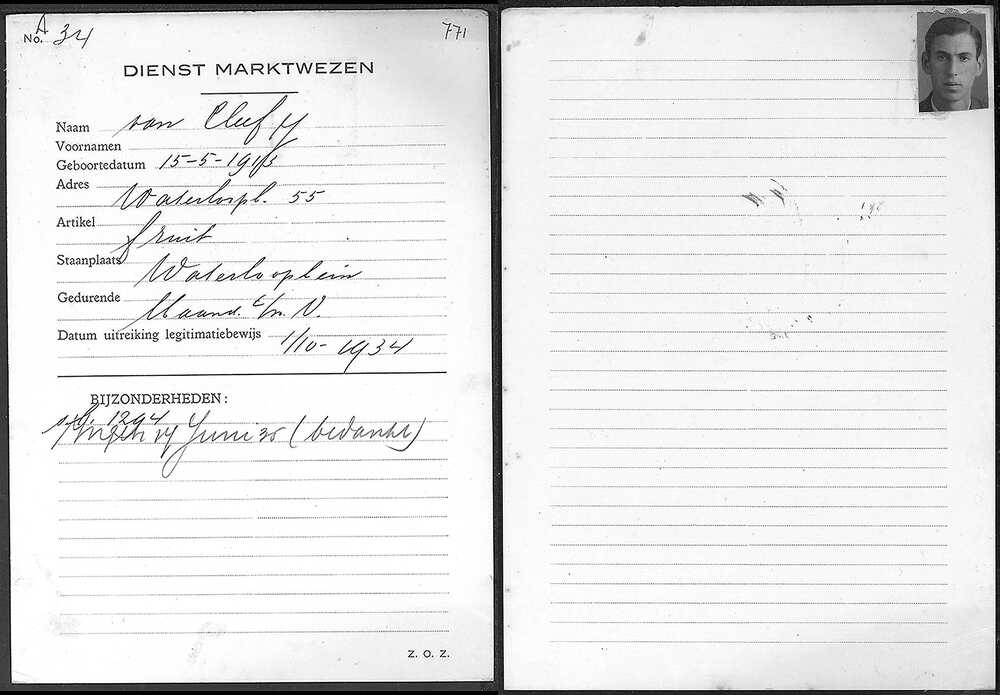 A
No. 34
771
DIENST MARKTWEZEN
Naam van Cleef
Voornamen
Geboortedatum 15-5-1913
Adres
Waterloopl. 55
Artikel
fruit
Staanplaats
Waterlooplein
Gedurende
Maand. t/m. V.
Datum uitreiking legitimatiebewijs 1/10-1934
BIJZONDERHEDEN:
1294
14 Juni 35 (bedankt)
Z. O. Z.